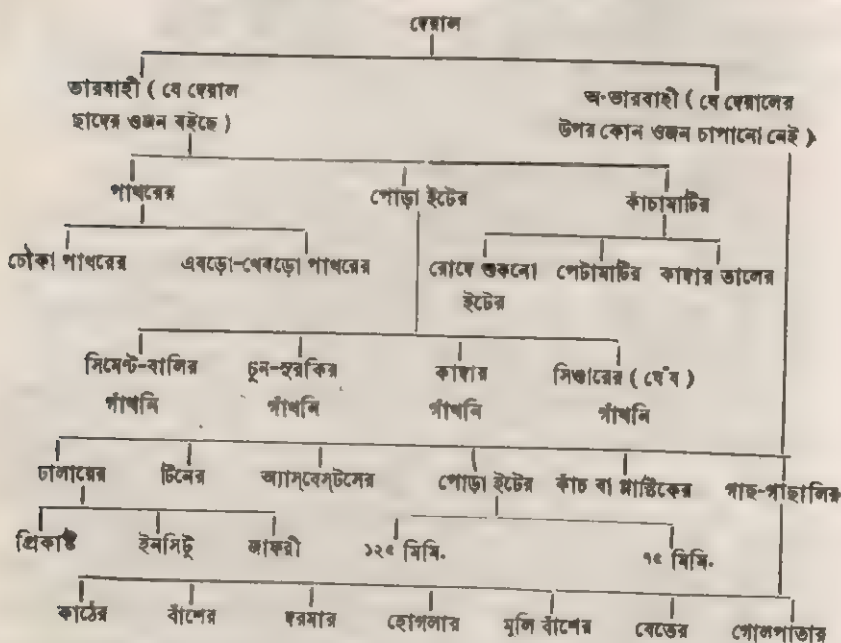 দেয়াল
ভারবাহী ( যে দেয়াল
ছাদের ওজন বইছে )
অ-ভারবাহী ( যে দেয়ালের
উপর কোন ওজন চাপানো নেই )
পাথরের
পোড়া ইটের
কাঁচামাটির
চৌকা পাথরের
এবড়ো-খেবড়ো পাথরের
রোদে শুকনো
ইটের
পেটামাটির
কাদার তালের
সিমেন্ট-বালির
গাঁথনি
চুন-সুরকির
গাঁথনি
কাদার
গাঁথনি
সিণ্ডারের ( ঘেঁষ )
গাঁথনি
ঢালায়ের
টিনের
অ্যাস্‌বেস্টসের
পোড়া ইটের
কাঁচ বা প্লাস্টিকের
গাছ-গাছালির
প্রিকাস্ট
ইনসিটু
জাফরী
১২৫ মিমি.
৭৫ মিমি.
কাঠের
বাঁশের
দরমার
হোগলার
মুলি বাঁশের
বেতের
গোলপাতার